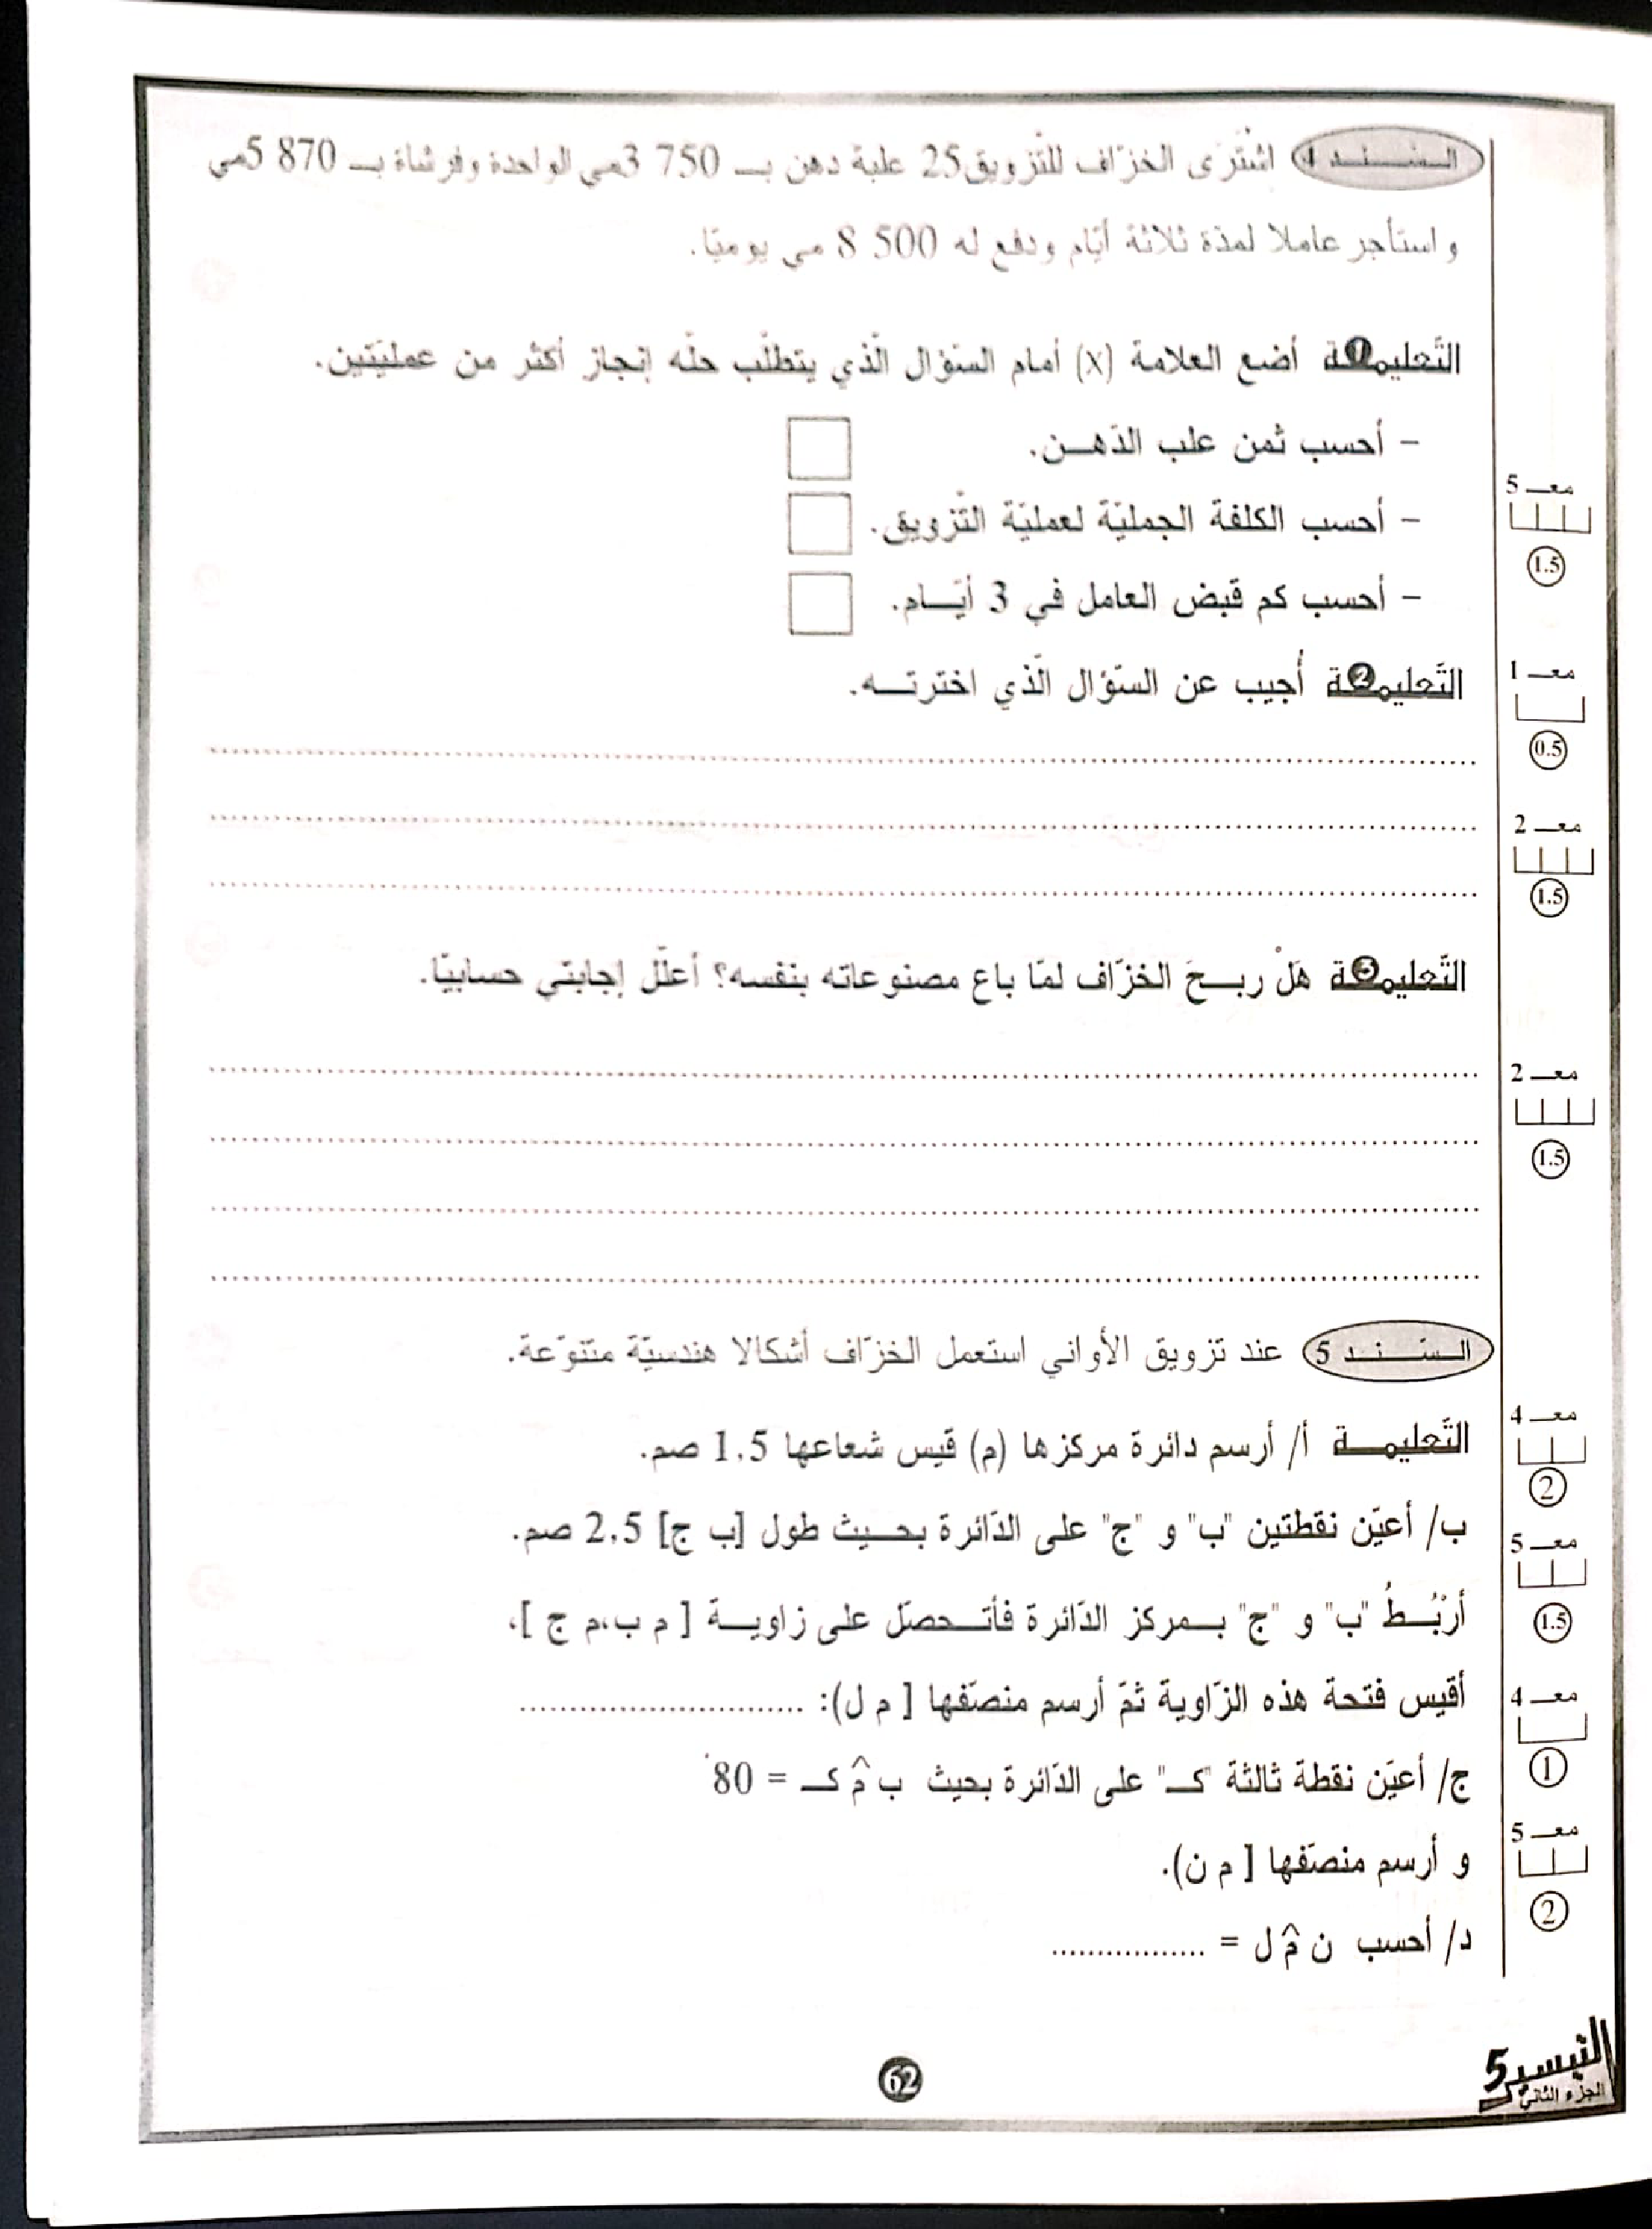 السّند 4 اشترى الخزّاف للتّزويق 25 علبة دهن بـ 750 3مي الواحدة وفرشاة بـ 870 5مي
و استأجر عاملا لمدّة ثلاثة أيّام ودفع له 500 8 مي يوميّا.
التّعليمة 1 أضع العلامة (x) أمام السّؤال الّذي يتطلّب حلّه إنجاز أكثر من عمليّتين.
- أحسب ثمن علب الدّهـن.
- أحسب الكلفة الجمليّة لعمليّة التّزويق.
معـ 5
- أحسب كم قبض العامل في 3 أيّـام.
1.5
التّعليمة 2 أُجيب عن السّؤال الّذي اخترتـه.
معـ 1
0.5
معـ 2
1.5
التّعليمة 3 هَلْ ربـحَ الخزّاف لمّا باع مصنوعاته بنفسه؟ أعلّل إجابتي حسابيّا.
معـ 2
1.5
السّند 5 عند تزويق الأواني استعمل الخزّاف أشكالا هندسيّة متنوّعة.
التّعليمـة أ/ أرسم دائرة مركزها (م) قيس شعاعها 1.5 صم.
معـ 4
2
ب/ أعيّن نقطتين "ب" و "ج" على الدّائرة بحـيث طول [ب ج] 2.5 صم.
معـ 5
أرْبُـطُ "ب" و "ج" بـمركز الدّائرة فأتـحصّل على زاويـة [ م ب،م ج ]،
1.5
أقيس فتحة هذه الزّاوية ثمّ أرسم منصّفها [ م ل): ............................
معـ 4
ج/ أعيّن نقطة ثالثة "كـ" على الدّائرة بحيث ب م̂ كـ = 80°
1
معـ 5
و أرسم منصّفها [ م ن).
2
د/ أحسب ن م̂ ل = .................
التيسير 5
الجزء الثاني
62